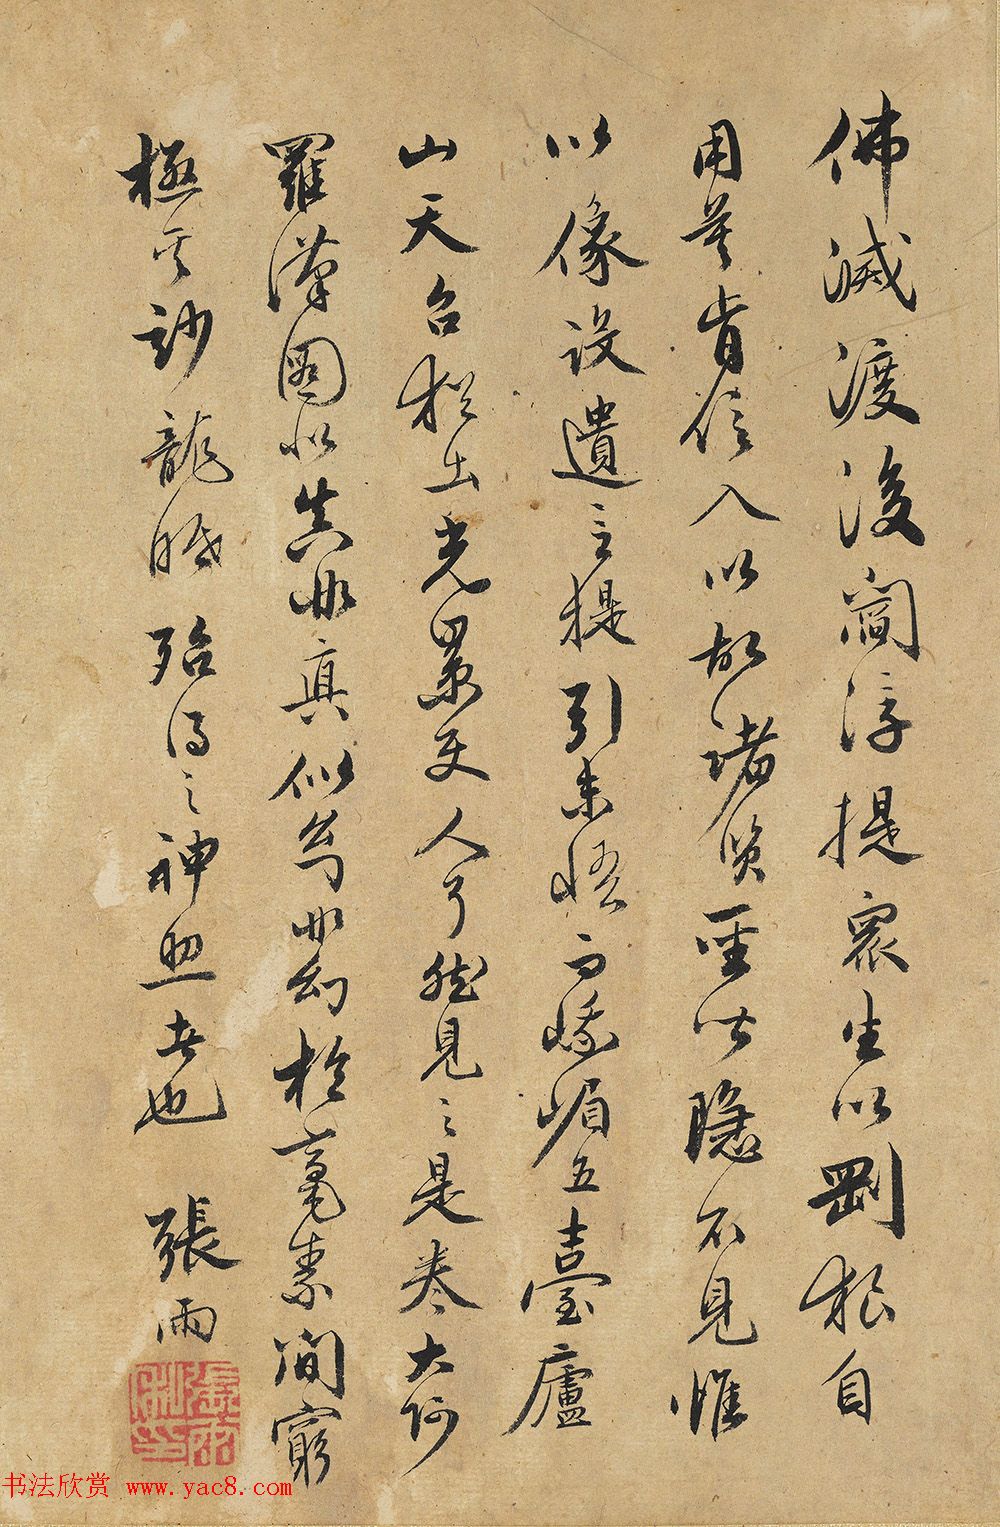 佛滅渡後閻浮提衆生以剛狠自
用莫肯信入以故諸賢聖皆隱不見惟
以像設遺言提引未悟而峨嵋五臺廬
山天台稍出光景使人了然見之是卷大阿
羅漢圖似真非真似幻非幻於毫素間窮
極其妙龍眠殆得之神照者也 張雨
張雨私印
书法欣赏 www.yac8.com